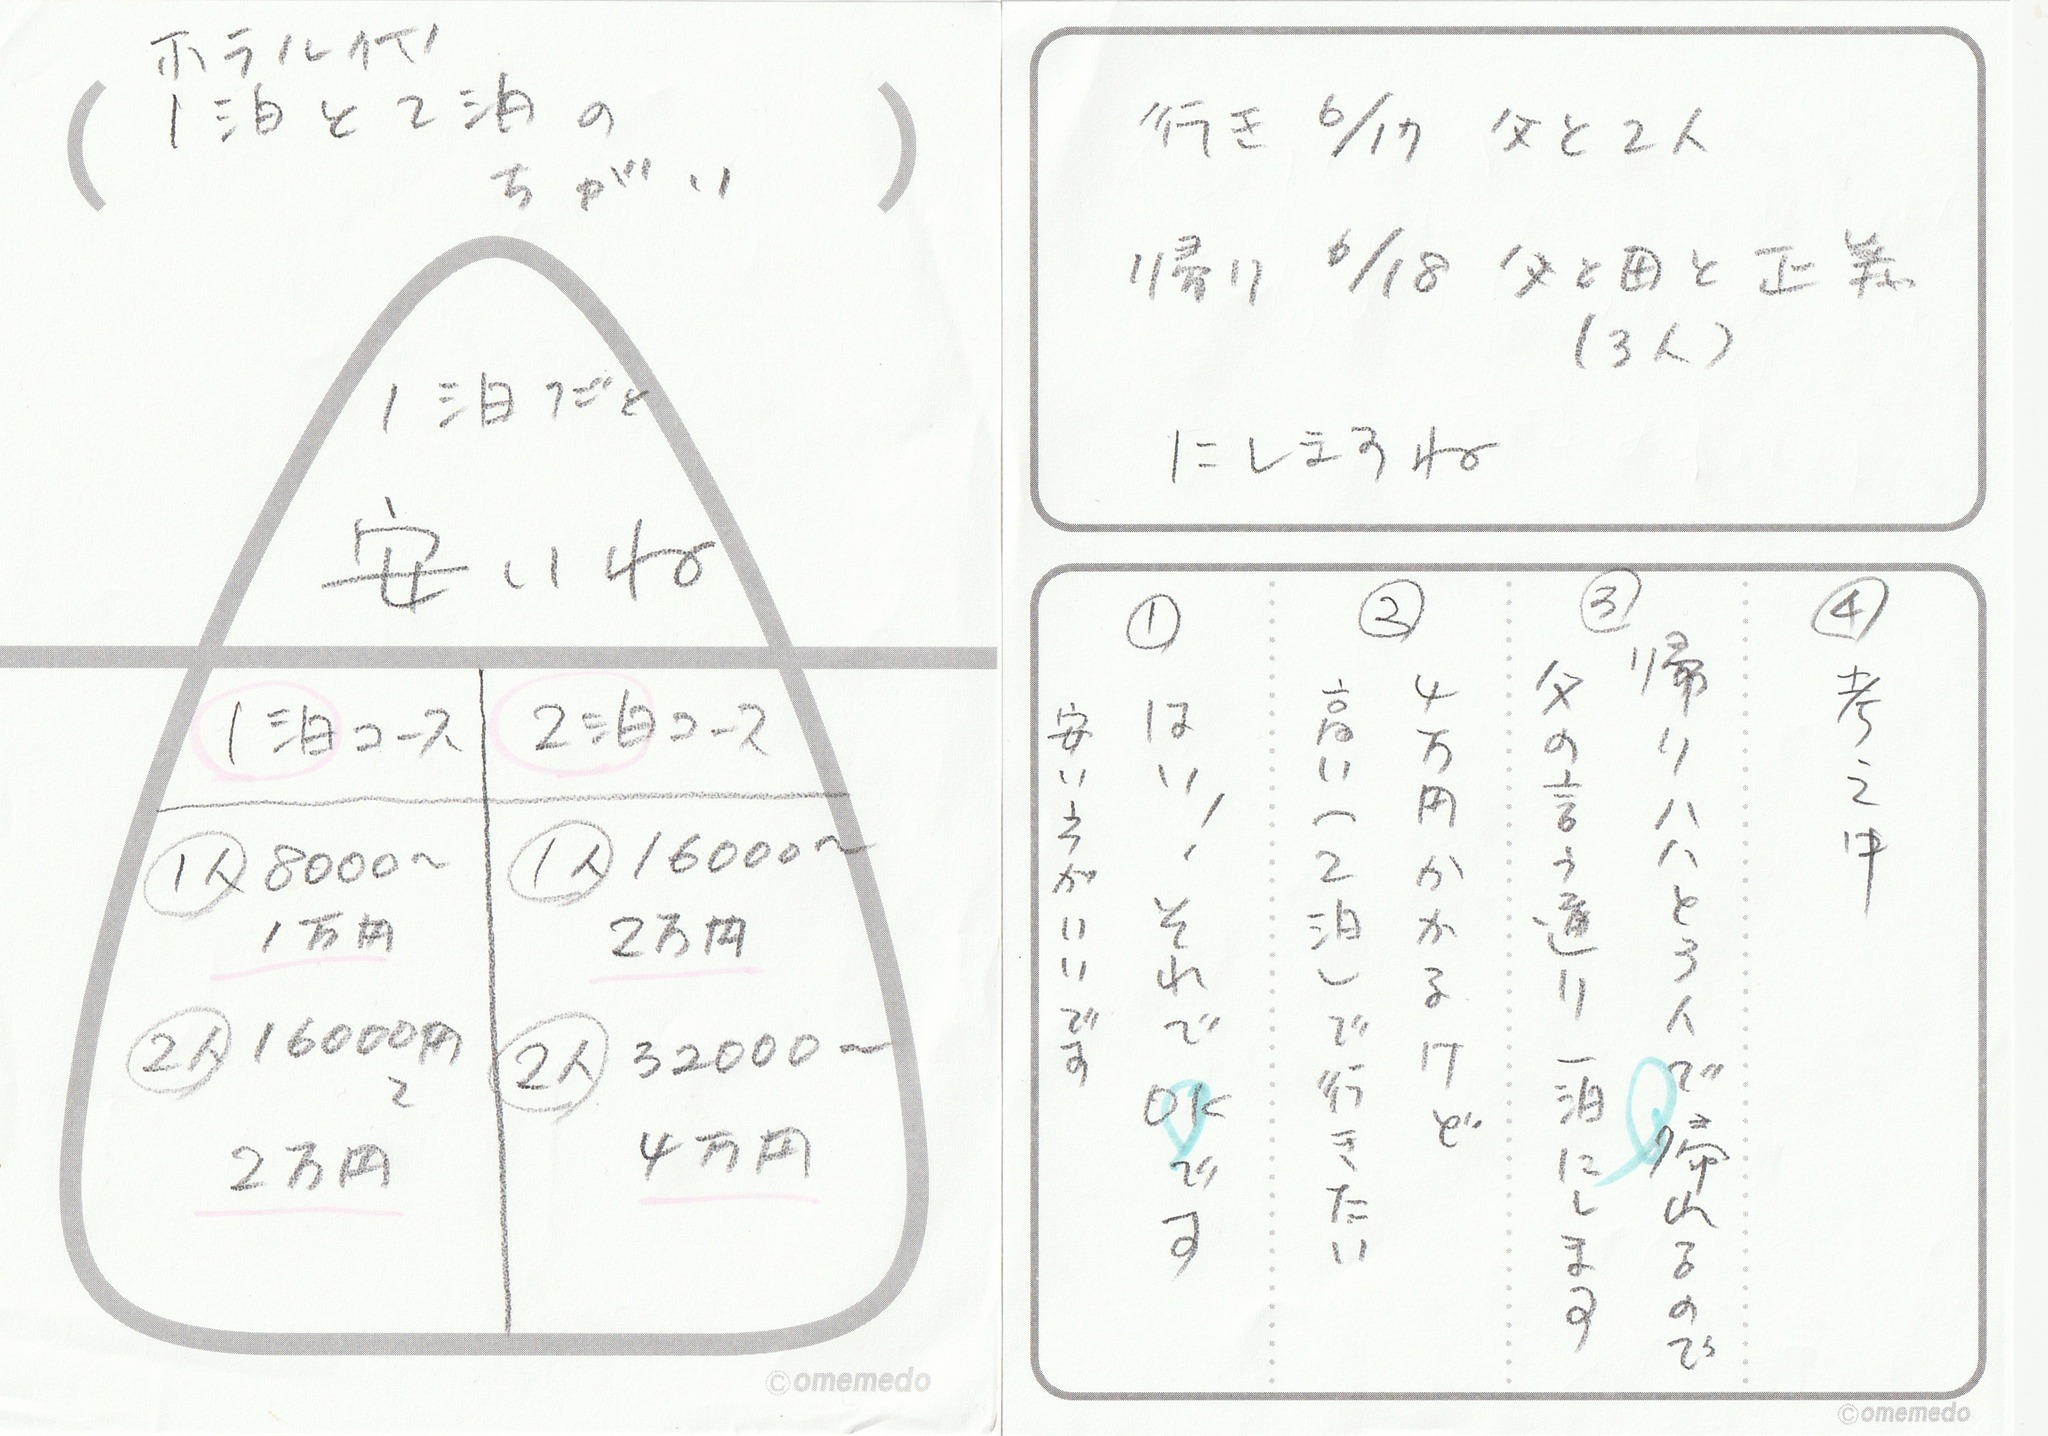 ホテル代
1泊と2泊の
ちがい
1泊だと
安いね
1泊コース
2泊コース
1人 8000〜
1万円
1人 16000〜
2万円
2人 16000円
2万円
2人 32000〜
4万円
©omemedo
行き 6/17 父と2人
帰り 6/18 父と母と正義
(3人)
にしますね
①
はい!、それでOKです
安い方がいいです
②
4万円かかるけど
高い(2泊)で行きたい
③
帰りハハと3人で帰れるので
父の言う通り一泊にします
④
考え中
©omemedo